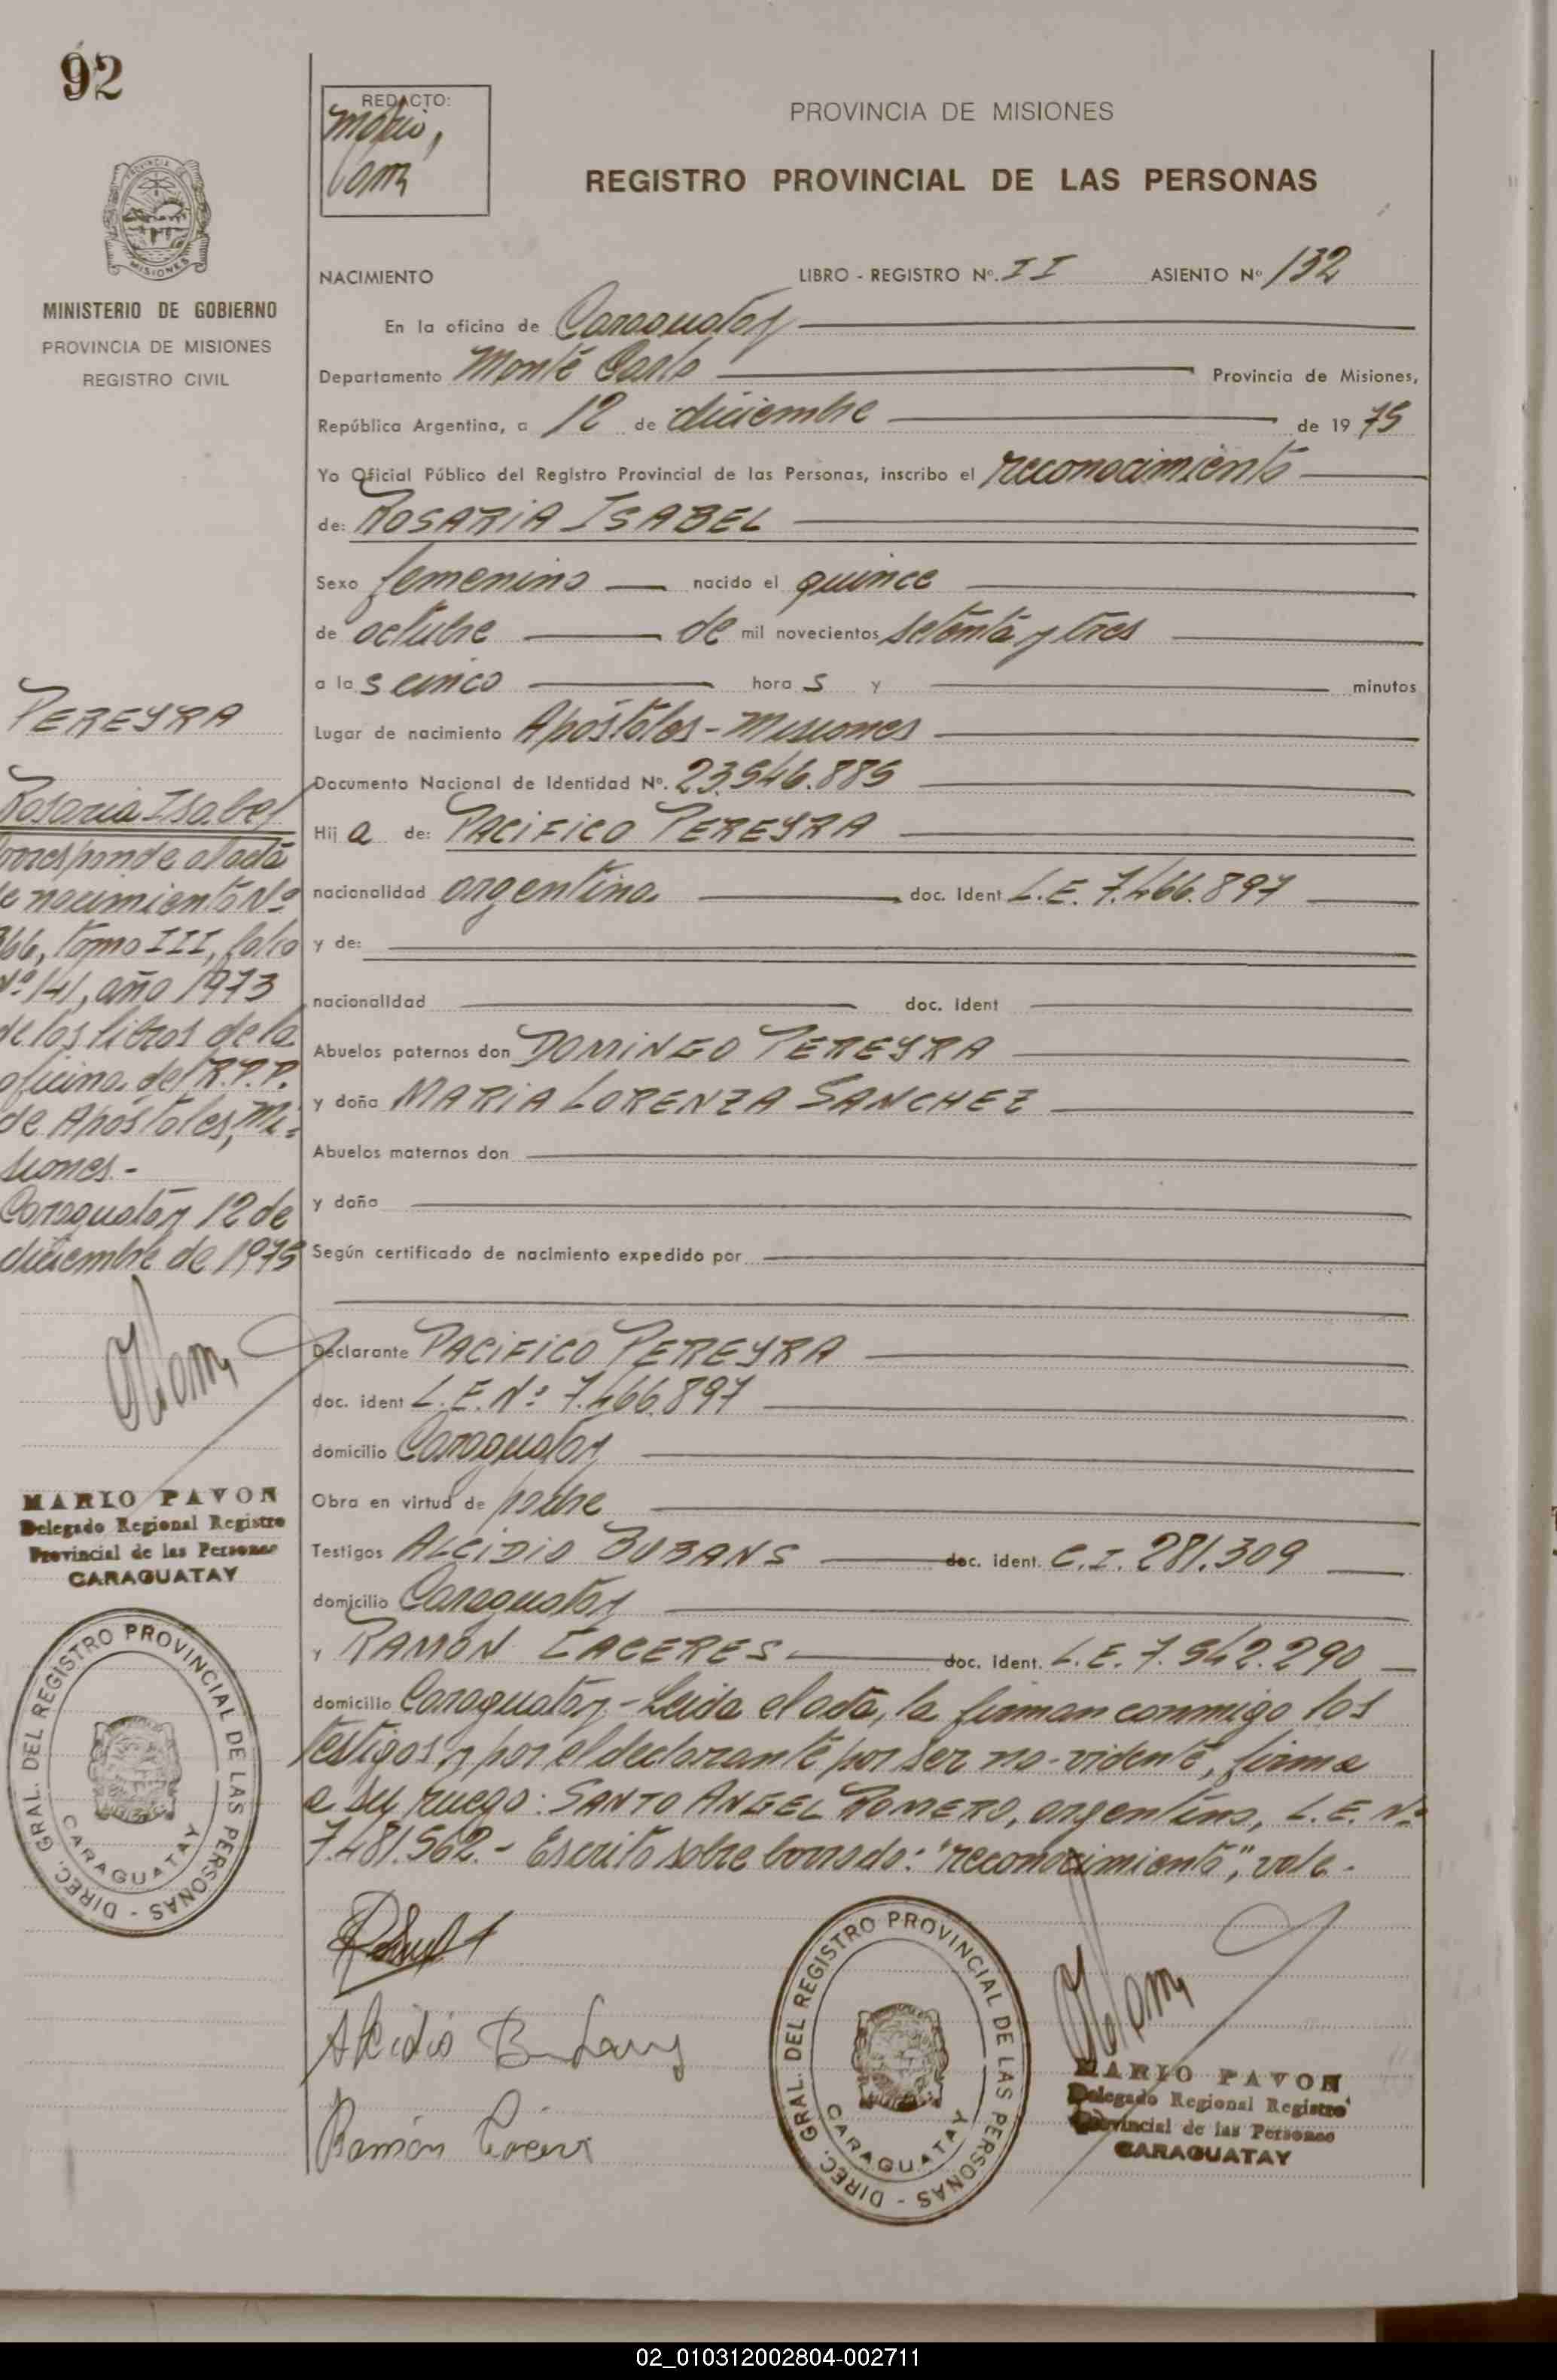 92
REDACTO:
PROVINCIA DE MISIONES
REGISTRO PROVINCIAL DE LAS PERSONAS
MISIONES
MINISTERIO DE GOBIERNO
PROVINCIA DE MISIONES
REGISTRO CIVIL
NACIMIENTO LIBRO - REGISTRO Nº. II ASIENTO Nº 132
En la oficina de Caraguatay
Departamento Monte Carlo Provincia de Misiones,
República Argentina, a 12 de diciembre de 1975
Yo Oficial Público del Registro Provincial de las Personas, inscribo el reconocimiento
de: ROSARIA ISABEL
Sexo femenino nacido el quince
de octubre de mil novecientos setenta y tres
a las cinco horas y minutos
Lugar de nacimiento Apóstoles - Misiones
Documento Nacional de Identidad Nº. 23.546.885
Hija de: PACIFICO PEREYRA
nacionalidad argentina doc. Ident L.E. 7.466.897
y de:
nacionalidad doc. Ident
Abuelos paternos don DOMINGO PEREYRA
y doña MARIA LORENZA SANCHEZ
Abuelos maternos don
y doña
Según certificado de nacimiento expedido por
Declarante PACIFICO PEREYRA
doc. ident L.E. Nº 7.466.897
domicilio Caraguatay
Obra en virtud de padre
Testigos ALCIDIO BUBANS doc. ident. C.I. 281.309
domicilio Caraguatay
y RAMON CACERES doc. Ident. L.E. 7.542.290
domicilio Caraguatay - Leida el acta, la firman conmigo los
testigos y por el declarante por ser no-vidente, firma
a su ruego: SANTO ANGEL ROMERO, argentino, L.E. Nº
7.481.562.- Escrito sobre borrado: "reconocimiento", vale.
PEREYRA
Rosaria Isabel
corresponde al acta
de nacimiento Nº
366, tomo III, folio
Nº 141, año 1973
de los libros de la
oficina del R.P.P.
de Apóstoles, Mi-
siones.-
Caraguatay 12 de
diciembre de 1975
MARIO PAVON
Delegado Regional Registro
Provincial de las Personas
CARAGUATAY
DIREC. GRAL. DEL REGISTRO PROVINCIAL DE LAS PERSONAS -
CARAGUATAY
Alcidio
Ramón
DIREC. GRAL. DEL REGISTRO PROVINCIAL DE LAS PERSONAS -
CARAGUATAY
MARIO PAVON
Delegado Regional Registro
Provincial de las Personas
CARAGUATAY
02_010312002804-002711